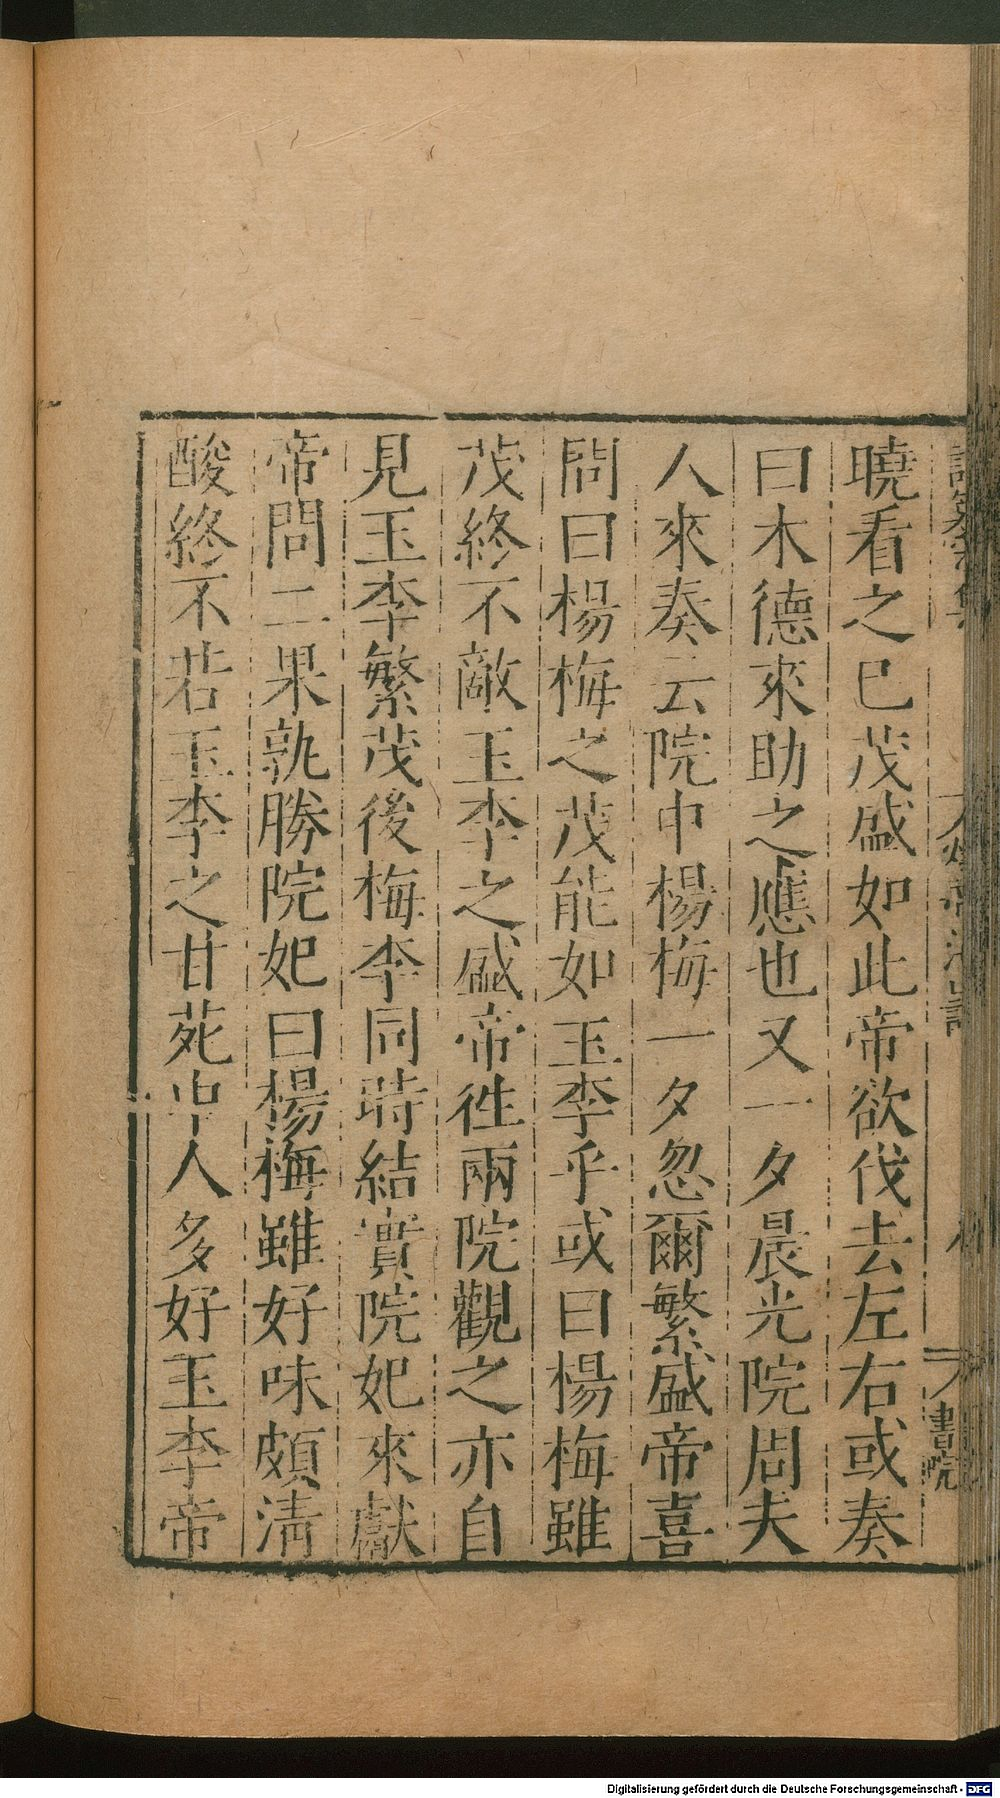 曉看之巳茂盛如此帝欲伐去左右或奏
曰木德來助之應也又一夕晨光院周夫
人來奏云院中楊梅一夕忽爾繁盛帝喜
問曰楊梅之茂能如玉李乎或曰楊梅雖
茂終不敵玉李之盛帝徃兩院觀之亦自
見玉李繁茂後梅李同時結實院妃來獻
帝問二果孰勝院妃曰楊梅雖好味頗清
酸終不若玉李之甘苑中人多好玉李帝
書院
Digitalisierung gefördert durch die Deutsche Forschungsgemeinschaft - DFG